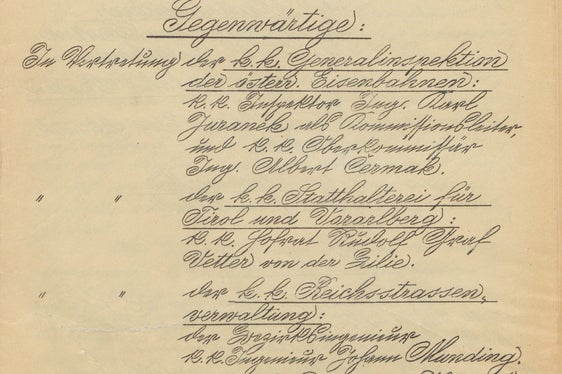 Gegenwärtige:
In Vertretung der k.k. Generalinspektion
der österr. Eisenbahnen:
k.k. Inspektor Ing. Karl
Juranek als Kommissionsleiter,
und k.k. Oberkommissär
Ing. Albert Čermak.
" " der k.k. Statthalterei für
Tirol und Vorarlberg:
k.k. Hofrat Rudolf Graf
Vetter von der Lilie.
" " der k.k. Reichsstrassen-
verwaltung:
der Bezirksingenieur
k.k. Ingenieur Johann Munding.